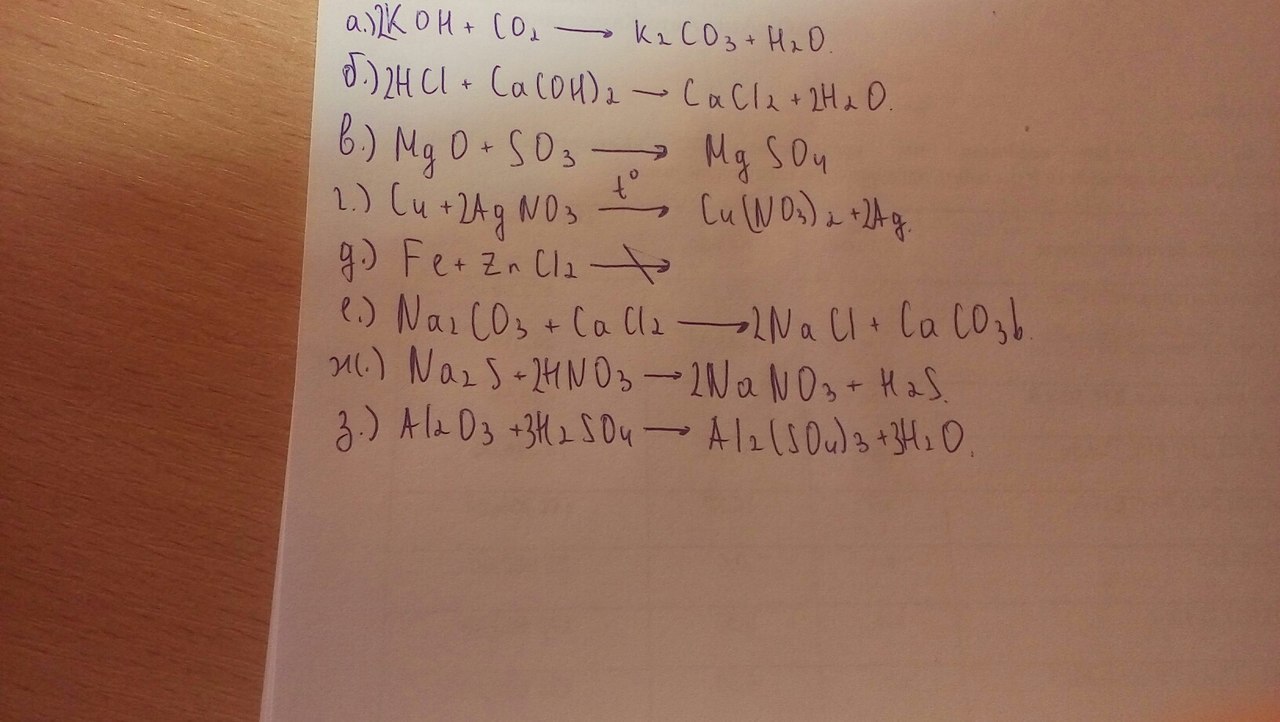 а.) 2KOH + CO₂ ⟶ K₂CO₃ + H₂O.
б.) 2HCl + Ca(OH)₂ → CaCl₂ + 2H₂O.
в.) MgO + SO₃ ⟶ MgSO₄
г.) Cu + 2AgNO₃ ⟶ t° Cu(NO₃)₂ + 2Ag.
д.) Fe + ZnCl₂ ↛
е.) Na₂CO₃ + CaCl₂ ⟶ 2NaCl + CaCO₃↓
ж.) Na₂S + 2HNO₃ → 2NaNO₃ + H₂S.
з.) Al₂O₃ + 3H₂SO₄ → Al₂(SO₄)₃ + 3H₂O.